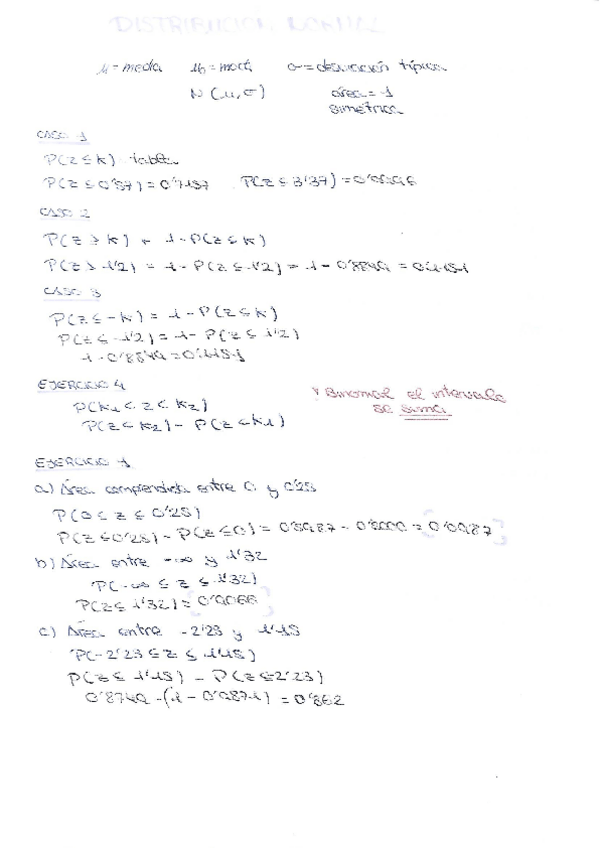 DISTRIBUCIÓN NORMAL
μ = media Mo = moda σ = desviación típica
N (μ, σ) área = 1
simétrica
CASO 1
P(z ≤ k) tabla
P(z ≤ 0'57) = 0'7157 P(z ≤ 3'37) = 0'9996
CASO 2
P(z > k) = 1 - P(z ≤ k)
P(z > 1'2) = 1 - P(z ≤ 1'2) = 1 - 0'8849 = 0'1151
CASO 3
P(z ≤ -k) = 1 - P(z ≤ k)
P(z ≤ -1'2) = 1 - P(z ≤ 1'2)
1 - 0'8849 = 0'1151
EJERCICIO 4
P(k1 < z < k2)
Binomial el intervalo
se suma
P(z < k2) - P(z < k1)
EJERCICIO 1
a) Área comprendida entre 0 y 0'25
P(0 ≤ z ≤ 0'25)
P(z ≤ 0'25) - P(z ≤ 0) = 0'5987 - 0'5000 = 0'0987
b) Área entre -∞ y 1'32
P(-∞ ≤ z ≤ 1'32)
P(z ≤ 1'32) = 0'9066
c) Área entre -2'23 y 1'15
P(-2'23 ≤ z ≤ 1'15)
P(z ≤ 1'15) - P(z ≤ 2'23)
0'8749 - (1 - 0'9871) = 0'862